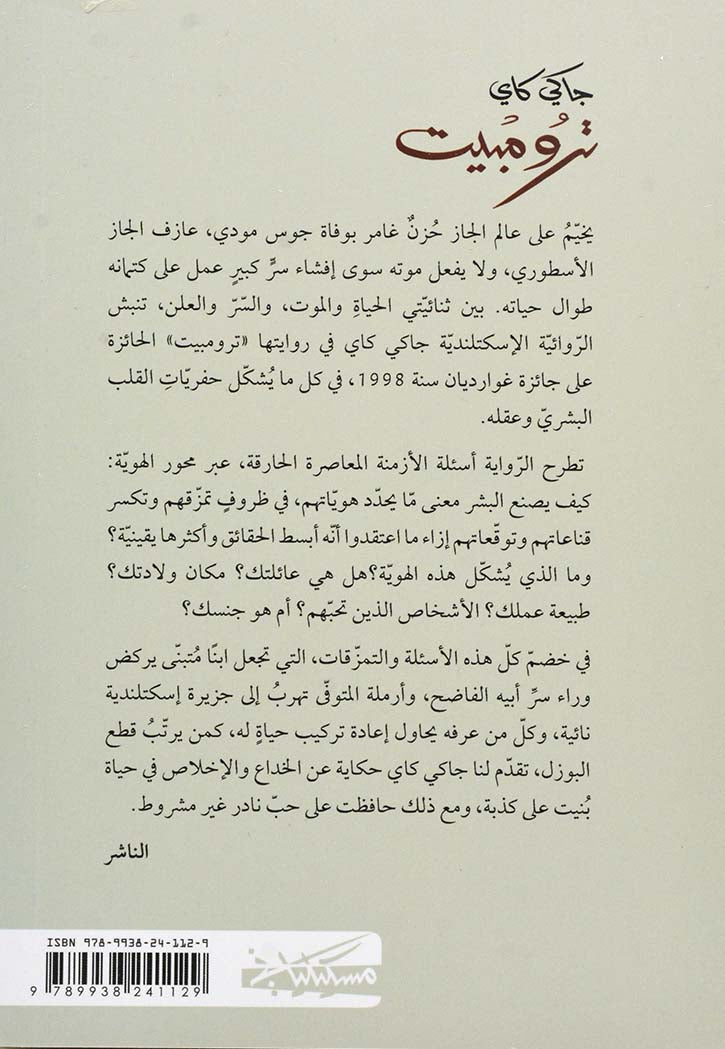 جاكي كاي
ترُومْبيت
يخيّمُ على عالم الجاز حُزنٌ غامر بوفاة جوس مودي، عازف الجاز
الأسطوري، ولا يفعل موته سوى إفشاء سرٍّ كبيرٍ عمل على كتمانه
طوال حياته. بين ثنائيّتي الحياةِ والموت، والسّرّ والعلن، تنبش
الرّوائيّة الإسكتلنديّة جاكي كاي في روايتها «ترومبيت» الحائزة
على جائزة غوارديان سنة 1998، في كل ما يُشكّل حفريّاتِ القلب
البشريّ وعقله.
تطرح الرّواية أسئلة الأزمنة المعاصرة الحارقة، عبر محور الهويّة:
كيف يصنع البشر معنى مّا يحدّد هويّاتهم، في ظروفٍ تمزّقهم وتكسر
قناعاتهم وتوقّعاتهم إزاء ما اعتقدوا أنّه أبسط الحقائق وأكثرها يقينية؟
وما الذي يُشكّل هذه الهويّة؟هل هي عائلتك؟ مكان ولادتك؟
طبيعة عملك؟ الأشخاص الذين تحبّهم؟ أم هو جنسك؟
في خضمّ كلّ هذه الأسئلة والتمزّقات، التي تجعل ابنًا مُتبنّى يركض
وراء سرِّ أبيه الفاضح، وأرملة المتوفّى تهربُ إلى جزيرة إسكتلندية
نائية، وكلّ من عرفه يحاول إعادة تركيب حياةٍ له، كمن يرتّبُ قطع
البوزل، تقدّم لنا جاكي كاي حكاية عن الخداع والإخلاص في حياة
بُنيت على كذبة، ومع ذلك حافظت على حبّ نادر غير مشروط.
الناشر
ISBN 978-9938-24-112-9
9 789938 241129
مسكيلياني